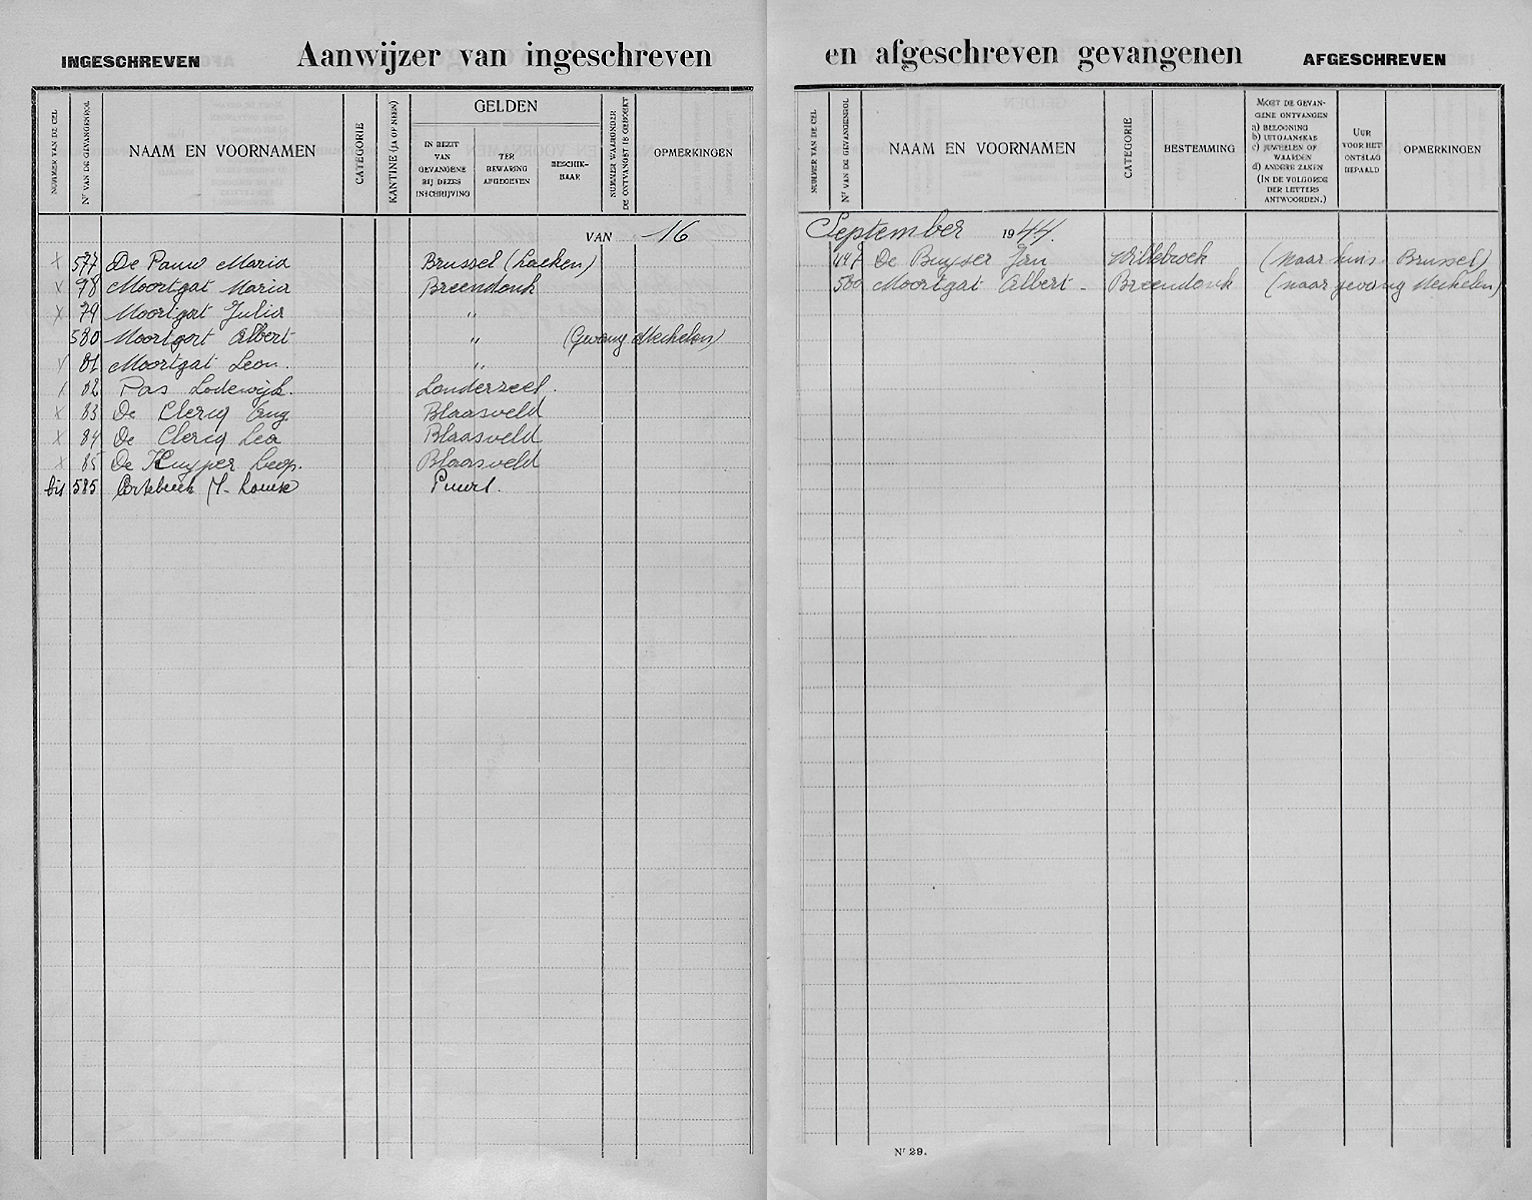 INGESCHREVEN Aanwijzer van ingeschreven en afgeschreven gevangenen AFGESCHREVEN
NUMMER VAN DE CEL
Nr VAN DE GEVANGENROL
NAAM EN VOORNAMEN
CATEGORIE
KANTINE (JA OF NEEN)
GELDEN
IN BEZIT
VAN
GEVANGENE
BIJ DEZES
INSCHRIJVING
TER
BEWARING
AFGEGEVEN
BESCHIK-
BAAR
NUMMER WAARONDER
DE ONTVANGST IS GEBOEKT
OPMERKINGEN
VAN 16
X 577 De Pauw Maria Brussel (Laeken)
V 78 Moortgat Maria Breendonk
X 79 Moortgat Julia "
580 Moortgat Albert " (Gevang Mechelen)
V 81 Moortgat Leon "
82 Pas Lodewijk. Londerzeel.
X 83 De Clercq Eug Blaasveld
X 84 De Clercq Lea Blaasveld
X 85 De Kuyper Leop. Blaasveld
bis 585 M. Louise Puurs.
NUMMER VAN DE CEL
Nr VAN DE GEVANGENROL
NAAM EN VOORNAMEN
CATEGORIE
BESTEMMING
MOET DE GEVAN-
GENE ONTVANGEN
a) BELOONING
b) UITGAANSKAS
c) JUWEELEN OF
WAARDEN
d) ANDERE ZAKEN
(IN DE VOLGORDE
DER LETTERS
ANTWOORDEN.)
UUR
VOOR HET
ONTSLAG
BEPAALD
OPMERKINGEN
September 1944.
De Buyser Jan Willebroek (naar huis Brussel)
580 Moortgat Albert - Breendonk (naar gevang Mechelen)
Nr 29.